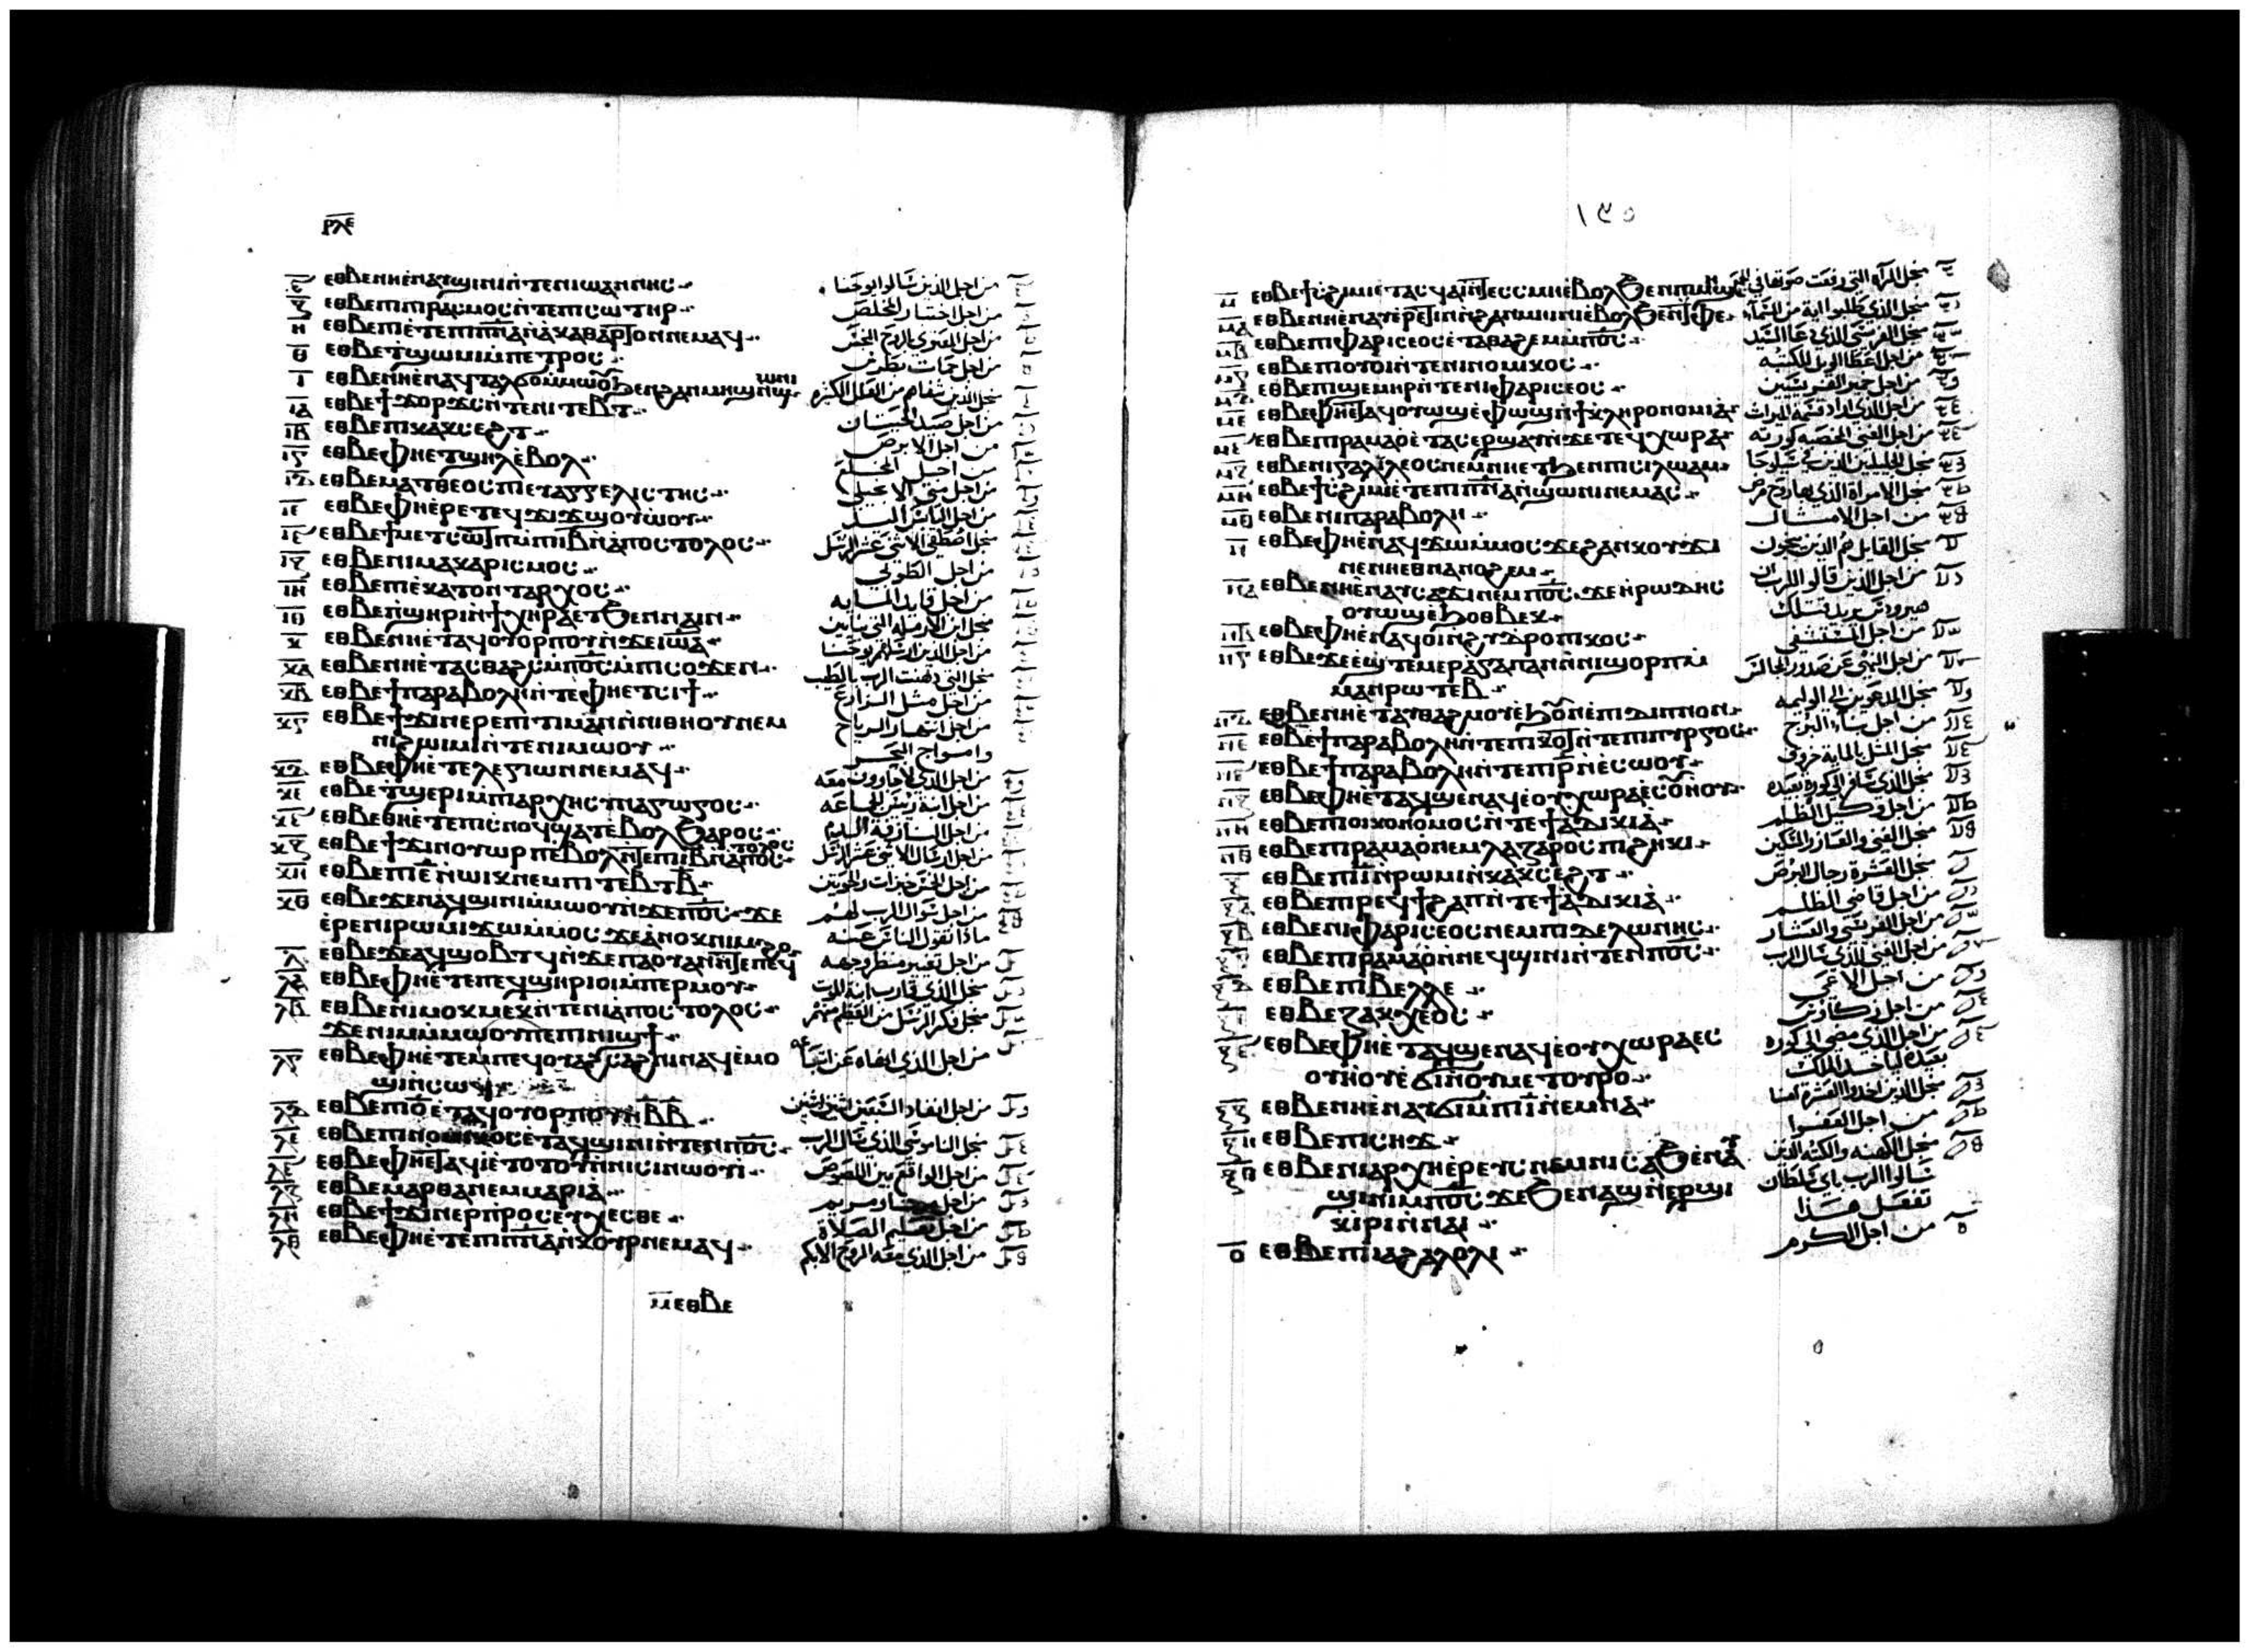 ⲣⲗⲉ
ⲉⲑⲃⲉⲛⲏⲉⲛⲁⲩϣⲓⲛⲓⲛⲧⲉⲛⲓⲱⲁⲛⲛⲏⲥ من اجل الذين سالوا يوحنا
ⲍ ⲉⲑⲃⲉⲡⲓⲡⲓⲣⲁⲥⲙⲟⲥⲛⲧⲉⲡⲥⲱⲧⲏⲣ من اجل اختبار المخلص
ⲏ ⲉⲑⲃⲉⲡⲓⲉⲧⲉⲡⲓⲡⲛⲁⲛⲁⲕⲁⲑⲁⲣⲧⲟⲛⲛⲉⲙⲁϥ من اجل المعتري بالروح النجس
ⲑ ⲉⲑⲃⲉⲧϣⲱⲙⲓⲙⲡⲉⲧⲣⲟⲥ من اجل حمات بطرس
ⲓ ⲉⲑⲃⲉⲛⲏⲉⲛⲁϥⲧⲁⲗϭⲟⲙⲙⲱⲟⲩϧⲉⲛϩⲁⲛⲙⲏϣⲛϣⲱⲛⲓ منجل الذين شفاهم من العلل الكثيره
ⲓⲁ ⲉⲑⲃⲉϯϫⲟⲣϫⲥⲛⲧⲉⲛⲓⲧⲉⲃⲧ من اجل صيد الحيتان
ⲓⲃ ⲉⲑⲃⲉⲡⲓⲕⲁⲕⲥⲉϩⲧ من اجل الابرص
ⲓⲅ ⲉⲑⲃⲉⲫⲏⲉⲧϣⲏⲗⲉⲃⲟⲗ من اجل المخلع
ⲓⲇ ⲉⲑⲃⲉⲙⲁⲧⲑⲉⲟⲥⲡⲓⲉⲩⲁⲅⲅⲉⲗⲓⲥⲧⲏⲥ من اجل متي الانجيلي
ⲓⲉ ⲉⲑⲃⲉⲫⲏⲉⲣⲉⲧⲉϥϫⲓϫϣⲟⲩⲱⲟⲩ من اجل اليابس اليد
ⲉⲑⲃⲉϯⲙⲉⲧⲥⲱⲧⲡⲙⲡⲓⲓⲃⲛⲁⲡⲟⲥⲧⲟⲗⲟⲥ منجل اصطفي الاثني عشر الرسل
ⲓⲍ ⲉⲑⲃⲉⲛⲓⲙⲁⲕⲁⲣⲓⲥⲙⲟⲥ من اجل الطوبي
ⲓⲏ ⲉⲑⲃⲉⲡⲓⲉⲕⲁⲧⲟⲛⲧⲁⲣⲭⲟⲥ من اجل قايد المايه
ⲓⲑ ⲉⲑⲃⲉⲡϣⲏⲣⲓⲛϯⲭⲏⲣⲁⲉⲧϧⲉⲛⲛⲁⲓⲛ منجل ابن الارمله التي بنايين
ⲕ ⲉⲑⲃⲉⲛⲏⲉⲧⲁϥⲟⲩⲟⲣⲡⲟⲩⲛϫⲉⲓⲱⲁ من اجل الذين ارسلهم يوحنا
ⲕⲁ ⲉⲑⲃⲉⲑⲏⲉⲧⲁⲥⲑⲁϩⲥⲙⲡⲟⲥⲙⲡⲓⲥⲟϫⲉⲛ منجل التي دهنت الرب بالطيب
ⲕⲃ ⲉⲑⲃⲉϯⲡⲁⲣⲁⲃⲟⲗⲏⲛⲧⲉⲫⲏⲉⲧⲥⲓϯ من اجل مثل الزارع
ⲕⲅ ⲉⲑⲃⲉϯϫⲓⲛⲉⲣⲉⲡⲓⲧⲓⲙⲁⲛⲛⲓⲑⲏⲟⲩⲛⲉⲙ من اجل انتهار الرياح
ⲛⲓϩⲱⲓⲙⲓⲛⲧⲉⲛⲓⲙⲱⲟⲩ وامواج البحر
ⲕⲇ ⲉⲑⲃⲉⲫⲏⲉⲧⲉⲗⲉⲅⲓⲱⲛⲛⲉⲙⲁϥ من اجل الذي لاجاوون معه
ⲕⲉ ⲉⲑⲃⲉⲧϣⲉⲣⲓⲙⲡⲁⲣⲭⲏⲥⲩⲛⲁⲅⲱⲅⲟⲥ من اجل ابنة رييس الجماعه
ⲉⲑⲃⲉⲑⲏⲉⲧⲉⲡⲓⲥⲛⲟϥϣⲁⲧⲉⲃⲟⲗϧⲁⲣⲟⲥ من اجل النازفه الدم
ⲕⲍ ⲉⲑⲃⲉϯϫⲓⲛⲟⲩⲱⲣⲡⲉⲃⲟⲗⲛⲧⲉⲡⲓⲓⲃⲛⲁⲡⲟⲥⲧⲟⲗⲟⲥ من اجل ارسال الاثني عشر الرسل
ⲕⲏ ⲉⲑⲃⲉⲡⲓⲉⲛⲱⲓⲕⲛⲉⲙⲡⲓⲧⲉⲃⲧⲃ من اجل الخمس خبزات والحوتين
ⲕⲑ ⲉⲑⲃⲉϫⲉⲛⲁϥϣⲓⲛⲓⲙⲙⲱⲟⲩⲛϫⲉⲡⲟⲥϫⲉ من اجل سوال الرب لهم
ⲉⲣⲉⲛⲓⲣⲱⲙⲓϫⲱⲙⲙⲟⲥϫⲉⲁⲛⲟⲕⲛⲓⲙ ماذا تقول الناس عنه
ⲗ ⲉⲑⲃⲉϫⲉⲁϥϣⲟⲃⲧϥⲛϫⲉⲡⲁⲟⲩⲁⲛⲛⲧⲉⲡⲉϥϩⲟ من اجل تغيير منظر وجهه
ⲗⲁ ⲉⲑⲃⲉⲫⲏⲉⲧⲉⲡⲉϥϣⲏⲣⲓⲟⲓⲙⲡⲉⲣⲙⲟⲩ منجل الذي قارب ابنه الموت
ⲗⲃ ⲉⲑⲃⲉⲛⲓⲙⲟⲕⲙⲉⲕⲛⲧⲉⲛⲓⲁⲡⲟⲥⲧⲟⲗⲟⲥ منجل فكر الرسل من العظيم منهم
ϫⲉⲛⲓⲙⲙⲙⲱⲟⲩⲡⲉⲡⲓⲛⲓϣϯ
ⲗⲅ ⲉⲑⲃⲉⲫⲏⲉⲧⲉⲙⲡⲉϥⲟⲩⲁϩⲥⲁϩⲛⲓⲛⲁϥⲉⲙⲟ من اجل الذي انهاه عن اتباعه
ϣⲓⲛⲥⲱϥ
ⲗⲇ ⲉⲑⲃⲉⲡⲓⲟⲉⲧⲁϥⲟⲩⲟⲣⲡⲟⲩⲛⲃⲃ من اجل انفاذ السبعين اثنين اثنين
ⲗⲉ ⲉⲑⲃⲉⲡⲓⲛⲟⲙⲓⲕⲟⲥⲉⲧⲁϥϣⲓⲛⲓⲛⲧⲉⲛⲡⲟⲥ منجل الناموسي الذي سال الرب
ⲉⲑⲃⲉⲫⲏⲉⲧⲁϥⲓⲉⲧⲟⲧⲟⲩⲛⲛⲓⲥⲓⲛⲱⲟⲩⲓ من اجل الواقع بين اللصوص
ⲗⲍ ⲉⲑⲃⲉⲙⲁⲣⲑⲁⲛⲉⲙⲙⲁⲣⲓⲁ من اجل مرتا ومريم
ⲗⲏ ⲉⲑⲃⲉϯϫⲓⲛⲉⲣⲡⲣⲟⲥⲉⲩⲭⲉⲥⲑⲉ من اجل تعليم الصلاة
ⲗⲑ ⲉⲑⲃⲉⲫⲏⲉⲧⲉⲡⲓⲡⲛⲁⲛⲕⲟⲩⲣⲛⲉⲙⲁϥ من اجل الذي معه الروح الابكم
ⲙⲉⲑⲃⲉ
١٣٥
ⲙ ⲉⲑⲃⲉϯⲥϩⲓⲙⲓⲉⲧⲁⲥϥⲁⲓⲛⲧⲉⲥⲥⲙⲏⲉⲃⲟⲗϧⲉⲛⲡⲓⲙⲏϣ منجل المرآه التي رفعت صوتها في الجمع
ⲙⲁ ⲉⲑⲃⲉⲛⲏⲉⲛⲁⲩⲉⲣⲉⲧⲓⲛⲛϩⲁⲛⲙⲏⲓⲛⲓⲉⲃⲟⲗϧⲉⲛⲧⲫⲉ منجل الذي طلبوا ايه من السمآء
ⲙⲃ ⲉⲑⲃⲉⲡⲓⲫⲁⲣⲓⲥⲉⲟⲥⲉⲧⲁⲑⲁϩⲉⲙⲙⲡⲟⲥ منجل الفريسي الذي دعا السيد
ⲙⲅ ⲉⲑⲃⲉⲡⲓⲟⲩⲟⲓⲛⲧⲉⲛⲓⲛⲟⲙⲓⲕⲟⲥ من اجل اعطا الويل للكتبه
ⲙⲇ ⲉⲑⲃⲉⲡⲓϣⲉⲙⲏⲣⲛⲧⲉⲛⲓⲫⲁⲣⲓⲥⲉⲟⲥ من اجل خمير الفريسيين
ⲙⲉ ⲉⲑⲃⲉⲫⲏⲉⲧⲁϥⲟⲩⲱϣⲉⲫⲱϣⲛϯⲕⲗⲏⲣⲟⲛⲟⲙⲓⲁ من اجل الذي اراد قسمة الميراث
ⲉⲑⲃⲉⲡⲓⲣⲁⲙⲁⲟⲉⲧⲁⲥⲉⲣϣⲁⲩⲛϫⲉⲧⲉϥⲭⲱⲣⲁ من اجل الغني الخصبه كورته
ⲙⲍ ⲉⲑⲃⲉⲛⲓⲅⲁⲗⲓⲗⲉⲟⲥⲛⲉⲙⲛⲏⲉⲧϧⲉⲛⲡⲥⲓⲗⲱⲁⲙ منجل الجليليين الذين في سيلوحا
ⲙⲏ ⲉⲑⲃⲉϯⲥϩⲓⲙⲓⲉⲧⲉⲡⲓⲡⲛⲁⲛϣⲱⲛⲓⲛⲉⲙⲁⲥ منجل الامراة الذي بها روح مرض
ⲙⲑ ⲉⲑⲃⲉⲛⲓⲡⲁⲣⲁⲃⲟⲗⲏ من اجل الامثال
ⲛ ⲉⲑⲃⲉⲫⲏⲉⲛⲁϥϫⲱⲙⲙⲟⲥϫⲉϩⲁⲛⲕⲟⲩϫⲓ منجل القايل هم الذين ينجون
ⲡⲉⲛⲏⲉⲑⲛⲁⲛⲟϩⲉⲙ
ⲛⲁ ⲉⲑⲃⲉⲛⲏⲉⲛⲁⲩⲥⲁϫⲓⲛⲉⲙⲡⲟⲥϫⲉⲏⲣⲱⲇⲏⲥ من اجل الذين قالو للرب ان
ⲟⲩⲱϣⲉϧⲟⲑⲃⲉⲕ هيرودس يريد قتلك
ⲛⲃ ⲉⲑⲃⲉⲫⲏⲉⲛⲁϥⲟⲓⲛϩⲩⲇⲣⲟⲡⲓⲕⲟⲥ من اجل المستسقي
ⲛⲅ ⲉⲑⲃⲉϫⲉⲉϣⲧⲉⲙⲉⲣⲁⲅⲁⲡⲁⲛⲛⲓϣⲟⲣⲡⲙ من اجل النهي عن صدور المجالس
ⲙⲁⲛⲣⲱⲧⲉⲃ
ⲛⲇ ⲉⲑⲃⲉⲛⲏⲉⲧⲁⲩⲑⲁϩⲙⲟⲩⲉϧⲟⲩⲛⲉⲡⲓⲇⲓⲡⲛⲟⲛ منجل المدعوين الي الوليمه
ⲛⲉ ⲉⲑⲃⲉϯⲡⲁⲣⲁⲃⲟⲗⲏⲛⲧⲉⲡⲓⲕⲟⲧⲛⲧⲉⲡⲓⲡⲩⲣⲅⲟⲥ من اجل بنآء البرج
ⲉⲑⲃⲉϯⲡⲁⲣⲁⲃⲟⲗⲏⲛⲧⲉⲡⲓⲣⲛⲉⲥⲱⲟⲩ منجل المثل بالمايه خروف
ⲛⲍ ⲉⲑⲃⲉⲫⲏⲉⲧⲁϥϣⲉⲛⲁϥⲉⲟⲩⲭⲱⲣⲁⲉⲥⲟⲩⲏⲟⲩ منجل الذي سافر الي كورة بعيده
ⲛⲏ ⲉⲑⲃⲉⲡⲓⲟⲓⲕⲟⲛⲟⲙⲟⲥⲛⲧⲉϯⲁⲇⲓⲕⲓⲁ من اجل وكيل الظلم
ⲛⲑ ⲉⲑⲃⲉⲡⲓⲣⲁⲙⲁⲟⲛⲉⲙⲗⲁⲍⲁⲣⲟⲥⲡⲓϩⲏⲕⲓ منجل الغني والعازر المسكين
ⲝ ⲉⲑⲃⲉⲡⲓⲓⲛⲣⲱⲙⲓⲛⲕⲁⲕⲥⲉϩⲧ منجل العشرة رجال البرص
ⲝⲁ ⲉⲑⲃⲉⲡⲓⲣⲉϥϯϩⲁⲡⲛⲧⲉϯⲁⲇⲓⲕⲓⲁ من اجل قاضي الظلم
ⲝⲃ ⲉⲑⲃⲉⲛⲓⲫⲁⲣⲓⲥⲉⲟⲥⲛⲉⲙⲡⲓⲇⲉⲗⲱⲛⲏⲥ من اجل الفريسي والعشار
ⲉⲑⲃⲉⲡⲓⲣⲁⲙⲁⲟⲛⲛⲉϥϣⲓⲛⲓⲛⲧⲉⲛⲡⲟⲥ من اجل الغني الذي سال الرب
ⲉⲑⲃⲉⲡⲓⲃⲉⲗⲗⲉ من اجل الاعمي
ⲉⲑⲃⲉⲍⲁⲕⲭⲉⲟⲥ من اجل زكاوس
ⲉⲑⲃⲉⲫⲏⲉⲧⲁϥϣⲉⲛⲁϥⲉⲟⲩⲭⲱⲣⲁⲉⲥ من اجل الذي مضي الي كوره
ⲟⲩⲏⲟⲩⲉϭⲓⲛⲟⲩⲙⲉⲧⲟⲩⲣⲟ بعيده لياخذ الملك
ⲝⲍ ⲉⲑⲃⲉⲛⲏⲉⲛⲁⲩϭⲓⲙⲡⲓⲓⲛⲉⲙⲛⲁ منجل الذين اخذوا العشرة امنا
ⲝⲏ ⲉⲑⲃⲉⲡⲓⲥⲏϫ من اجل العفوا
ⲝⲑ ⲉⲑⲃⲉⲛⲓⲁⲣⲭⲏⲉⲣⲉⲩⲥⲛⲉⲙⲛⲓⲥⲁϧⲉⲛⲁⲩ منجل الكهنه والكتبه الذين
ϣⲓⲛⲓⲙⲡⲟⲥϫⲉϧⲉⲛⲁϣⲛⲉⲣϣⲓ سالوا الرب باي سلطان
ⲕⲓⲣⲓⲛⲛⲁⲓ تفعل هذا
ⲟ ⲉⲑⲃⲉⲡⲓⲓⲁϩⲁⲗⲟⲗⲓ من اجل الكرم